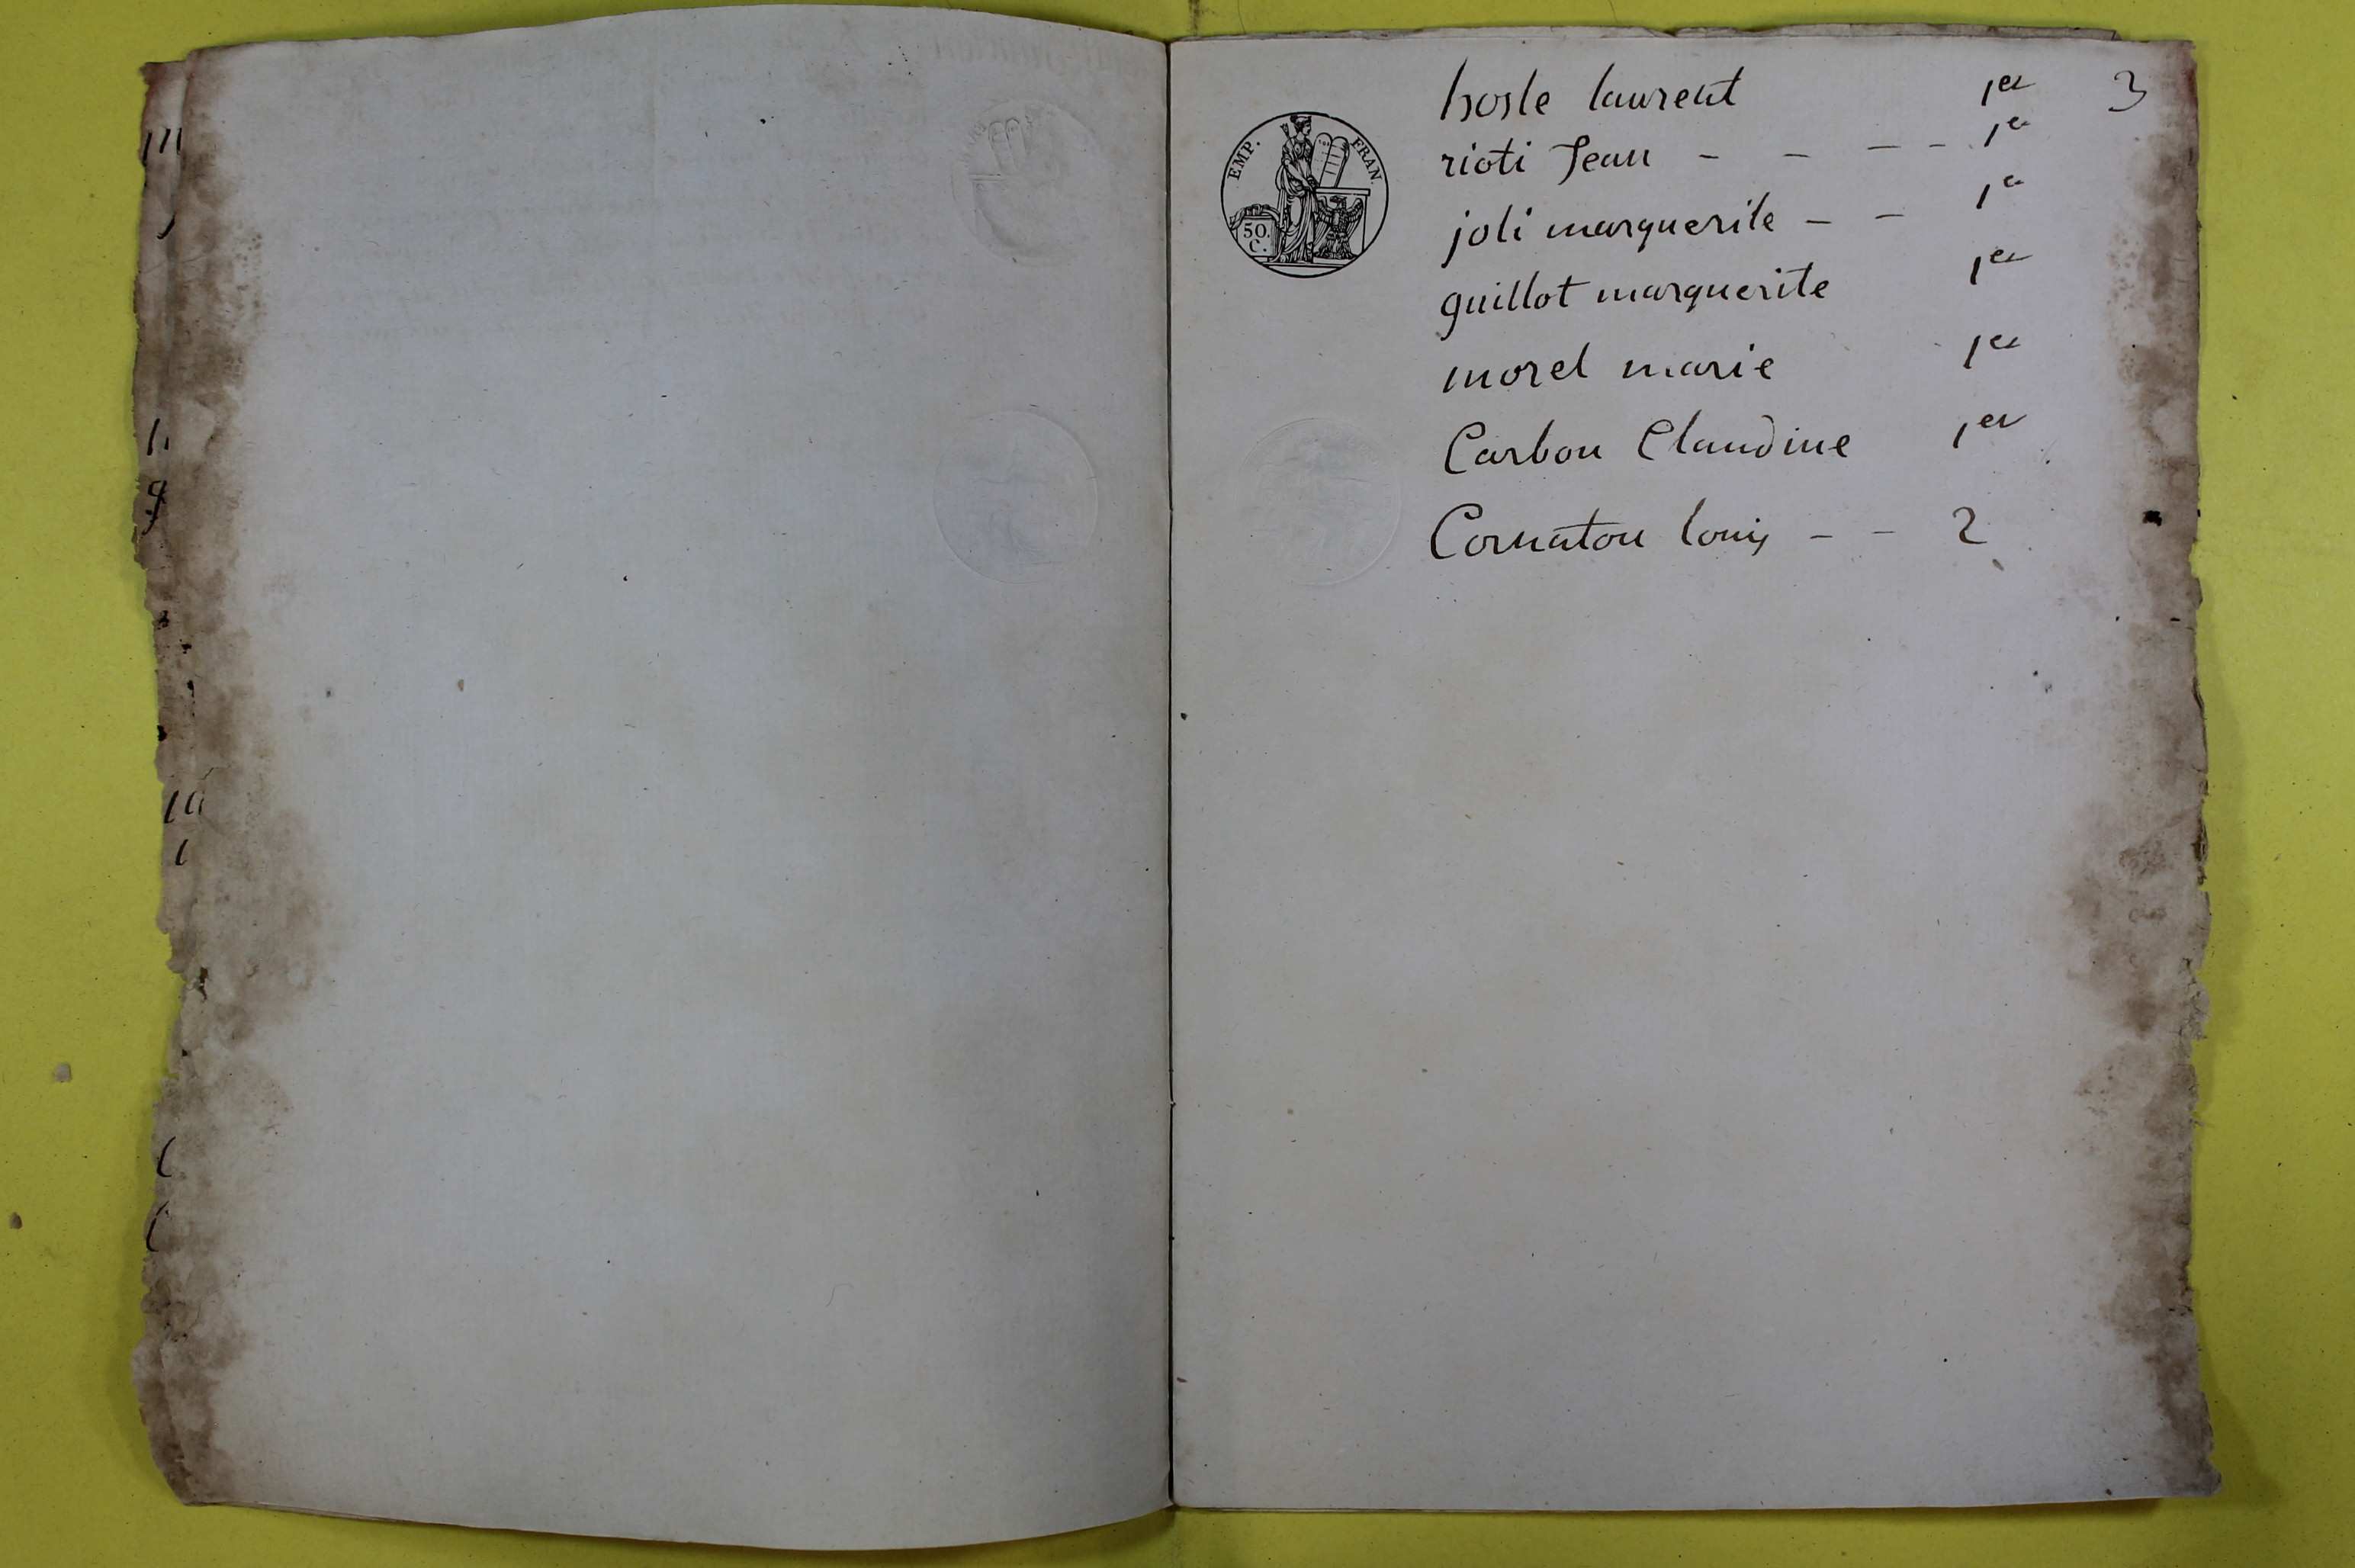 3
hosle laurent 1er
EMP. FRAN.
50.
C.
rioti Jean - - - - 1er
joli marguerite - - 1er
guillot marguerite 1er
morel marie 1er
Carbon Claudine 1er
Cornaton louis - - 2